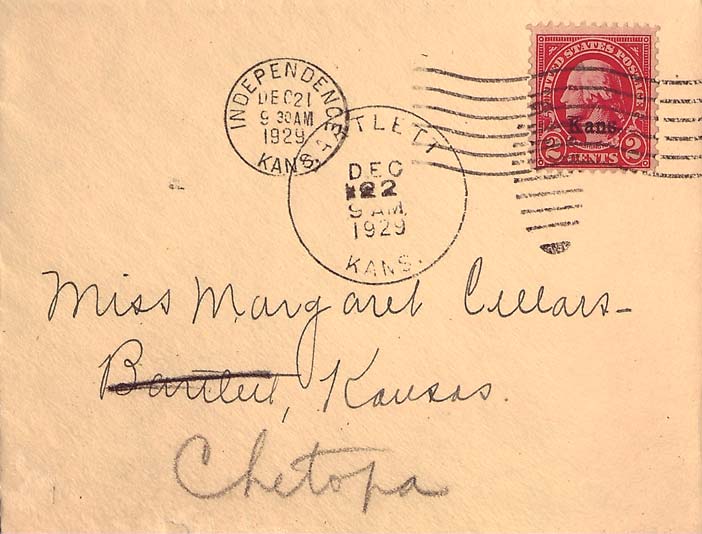 UNITED STATES POSTAGE
Kans.
2 CENTS 2
INDEPENDENCE
DEC 21
9 30 AM
1929
KANS.
BARTLETT
DEC
22
9 AM.
1929
KANS.
Miss Margaret Cellars-
Bartlett, Kansas.
Chetopa